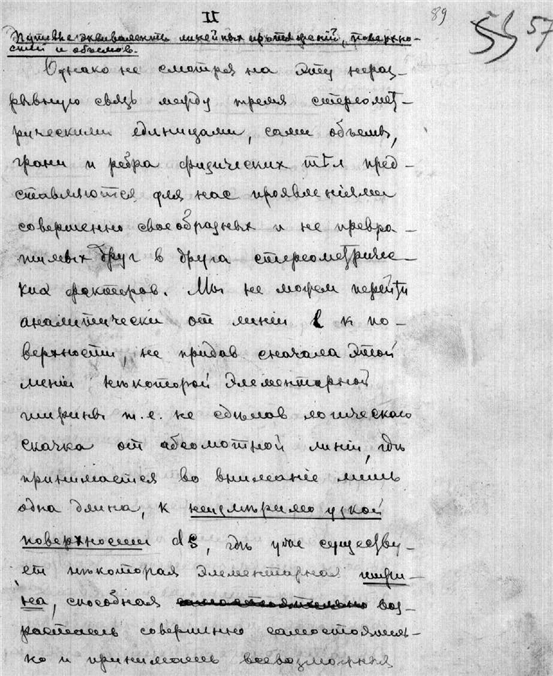 II
89
55 57
Путевые эквиваленты линейных протяжений, поверхно-
стей и объемов.
Однако не смотря на эту нераз-
рывную связь между тремя стереомет-
рическими единицами, сами объемы,
грани и ребра физических тѣл пред-
ставляются для нас проявленіями
совершенно своеобразных и не превра-
тимых друг в друга стереометричес-
ких факторов. Мы не можем перейти
аналитически от линіи l к по-
верхности, не придав сначала этой
линіи нѣкоторой элементарной
ширины т.е. не сдѣлав логическаго
скачка от абсолютной линіи, гдѣ
принимается во вниманіе лишь
одна длина, к неизмѣримо узкой
поверхности ds, гдѣ уже существу-
ет нѣкоторая элементарная шири-
на, способная воз-
растать совершенно самостоятель-
но и принимать всевозможныя